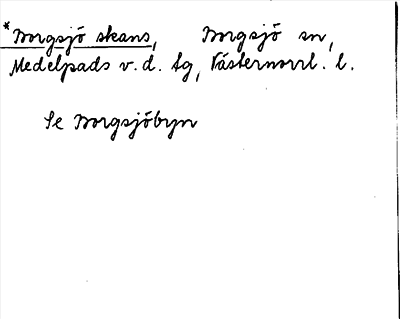 *Borgsjö skans, Borgsjö sn,
Medelpads v. d. tg, Västernorrl. l.
Se Borgsjöbyn